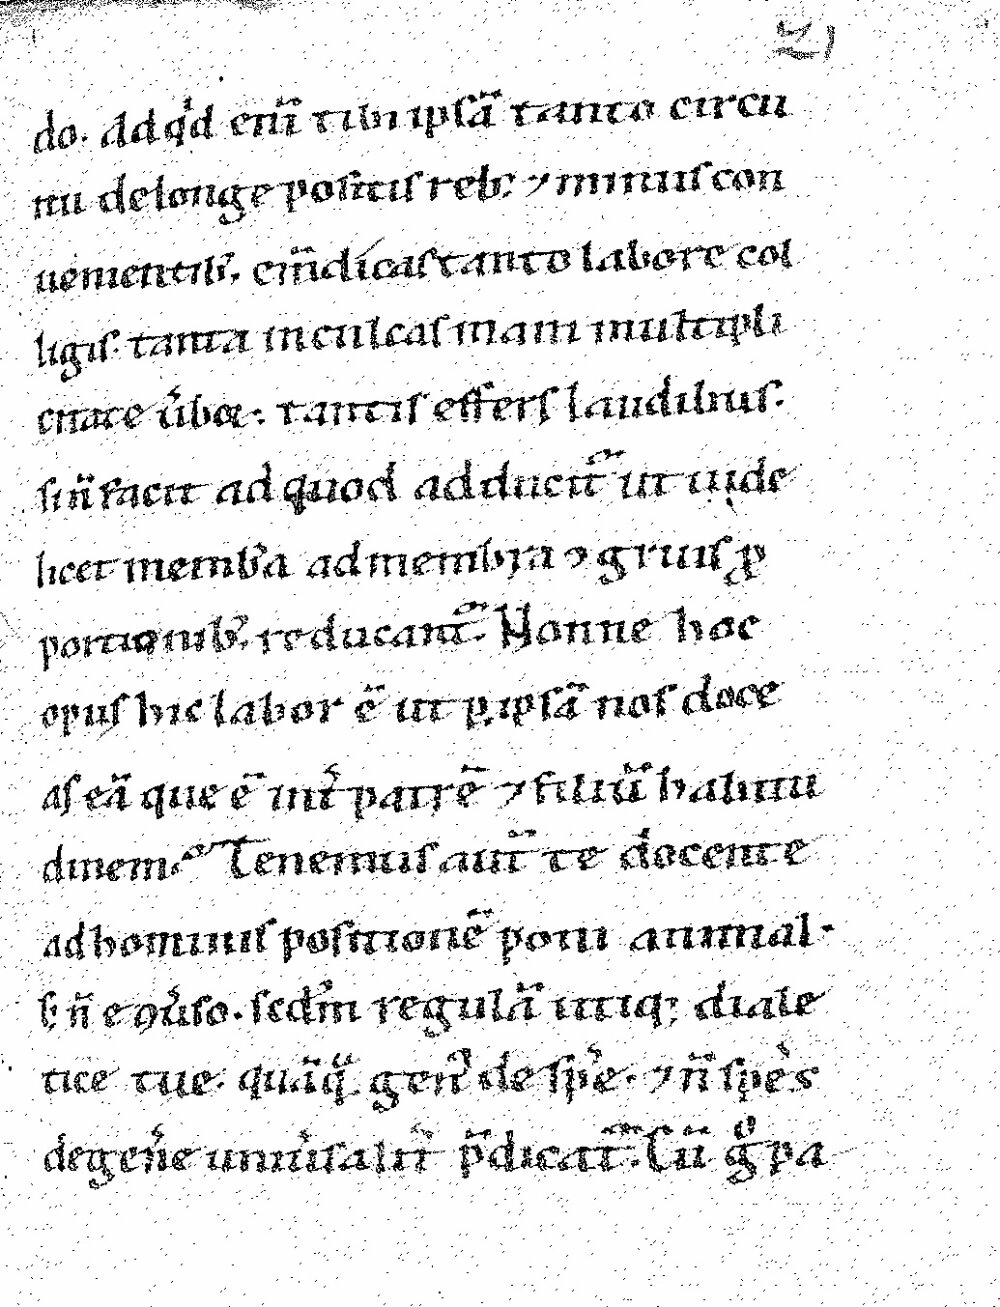 do. ad qͥd eni̅ tibi ipsa̅ tanto circu
itu de longe positis reb; ⁊ minus con
uenientib;. eni̅ dicas tanto labore col
ligis. tanta inculcas mani multipli
citate u̓boꝝ. tantis effers laudibus.
si n̅ facit ad quod adducit᷑ ut uide
licet membͣa ad membra ⁊ gruis ꝓ
portionib;. reducant᷑. Nonne hoc
opus hic labor e̅ ut ꝑ ipsa̅ nos doce
as ea̅ que e̅ int̓ patre̅ ⁊ filiu̅ habitu
dinem. Tenemus aut̅ te docente
ad hominis positione̅ poni animal.
sꝫ n̅ e ꝯu̓so. scd̅m regula̅ utiq; diale
tice tue. qua̅q̅ gen᷒ de sp̅e. ⁊ n̅ sp̅es
de gen̓e uniu̓salit̓ p̅dicat᷑. Cu̅ gͦ pa